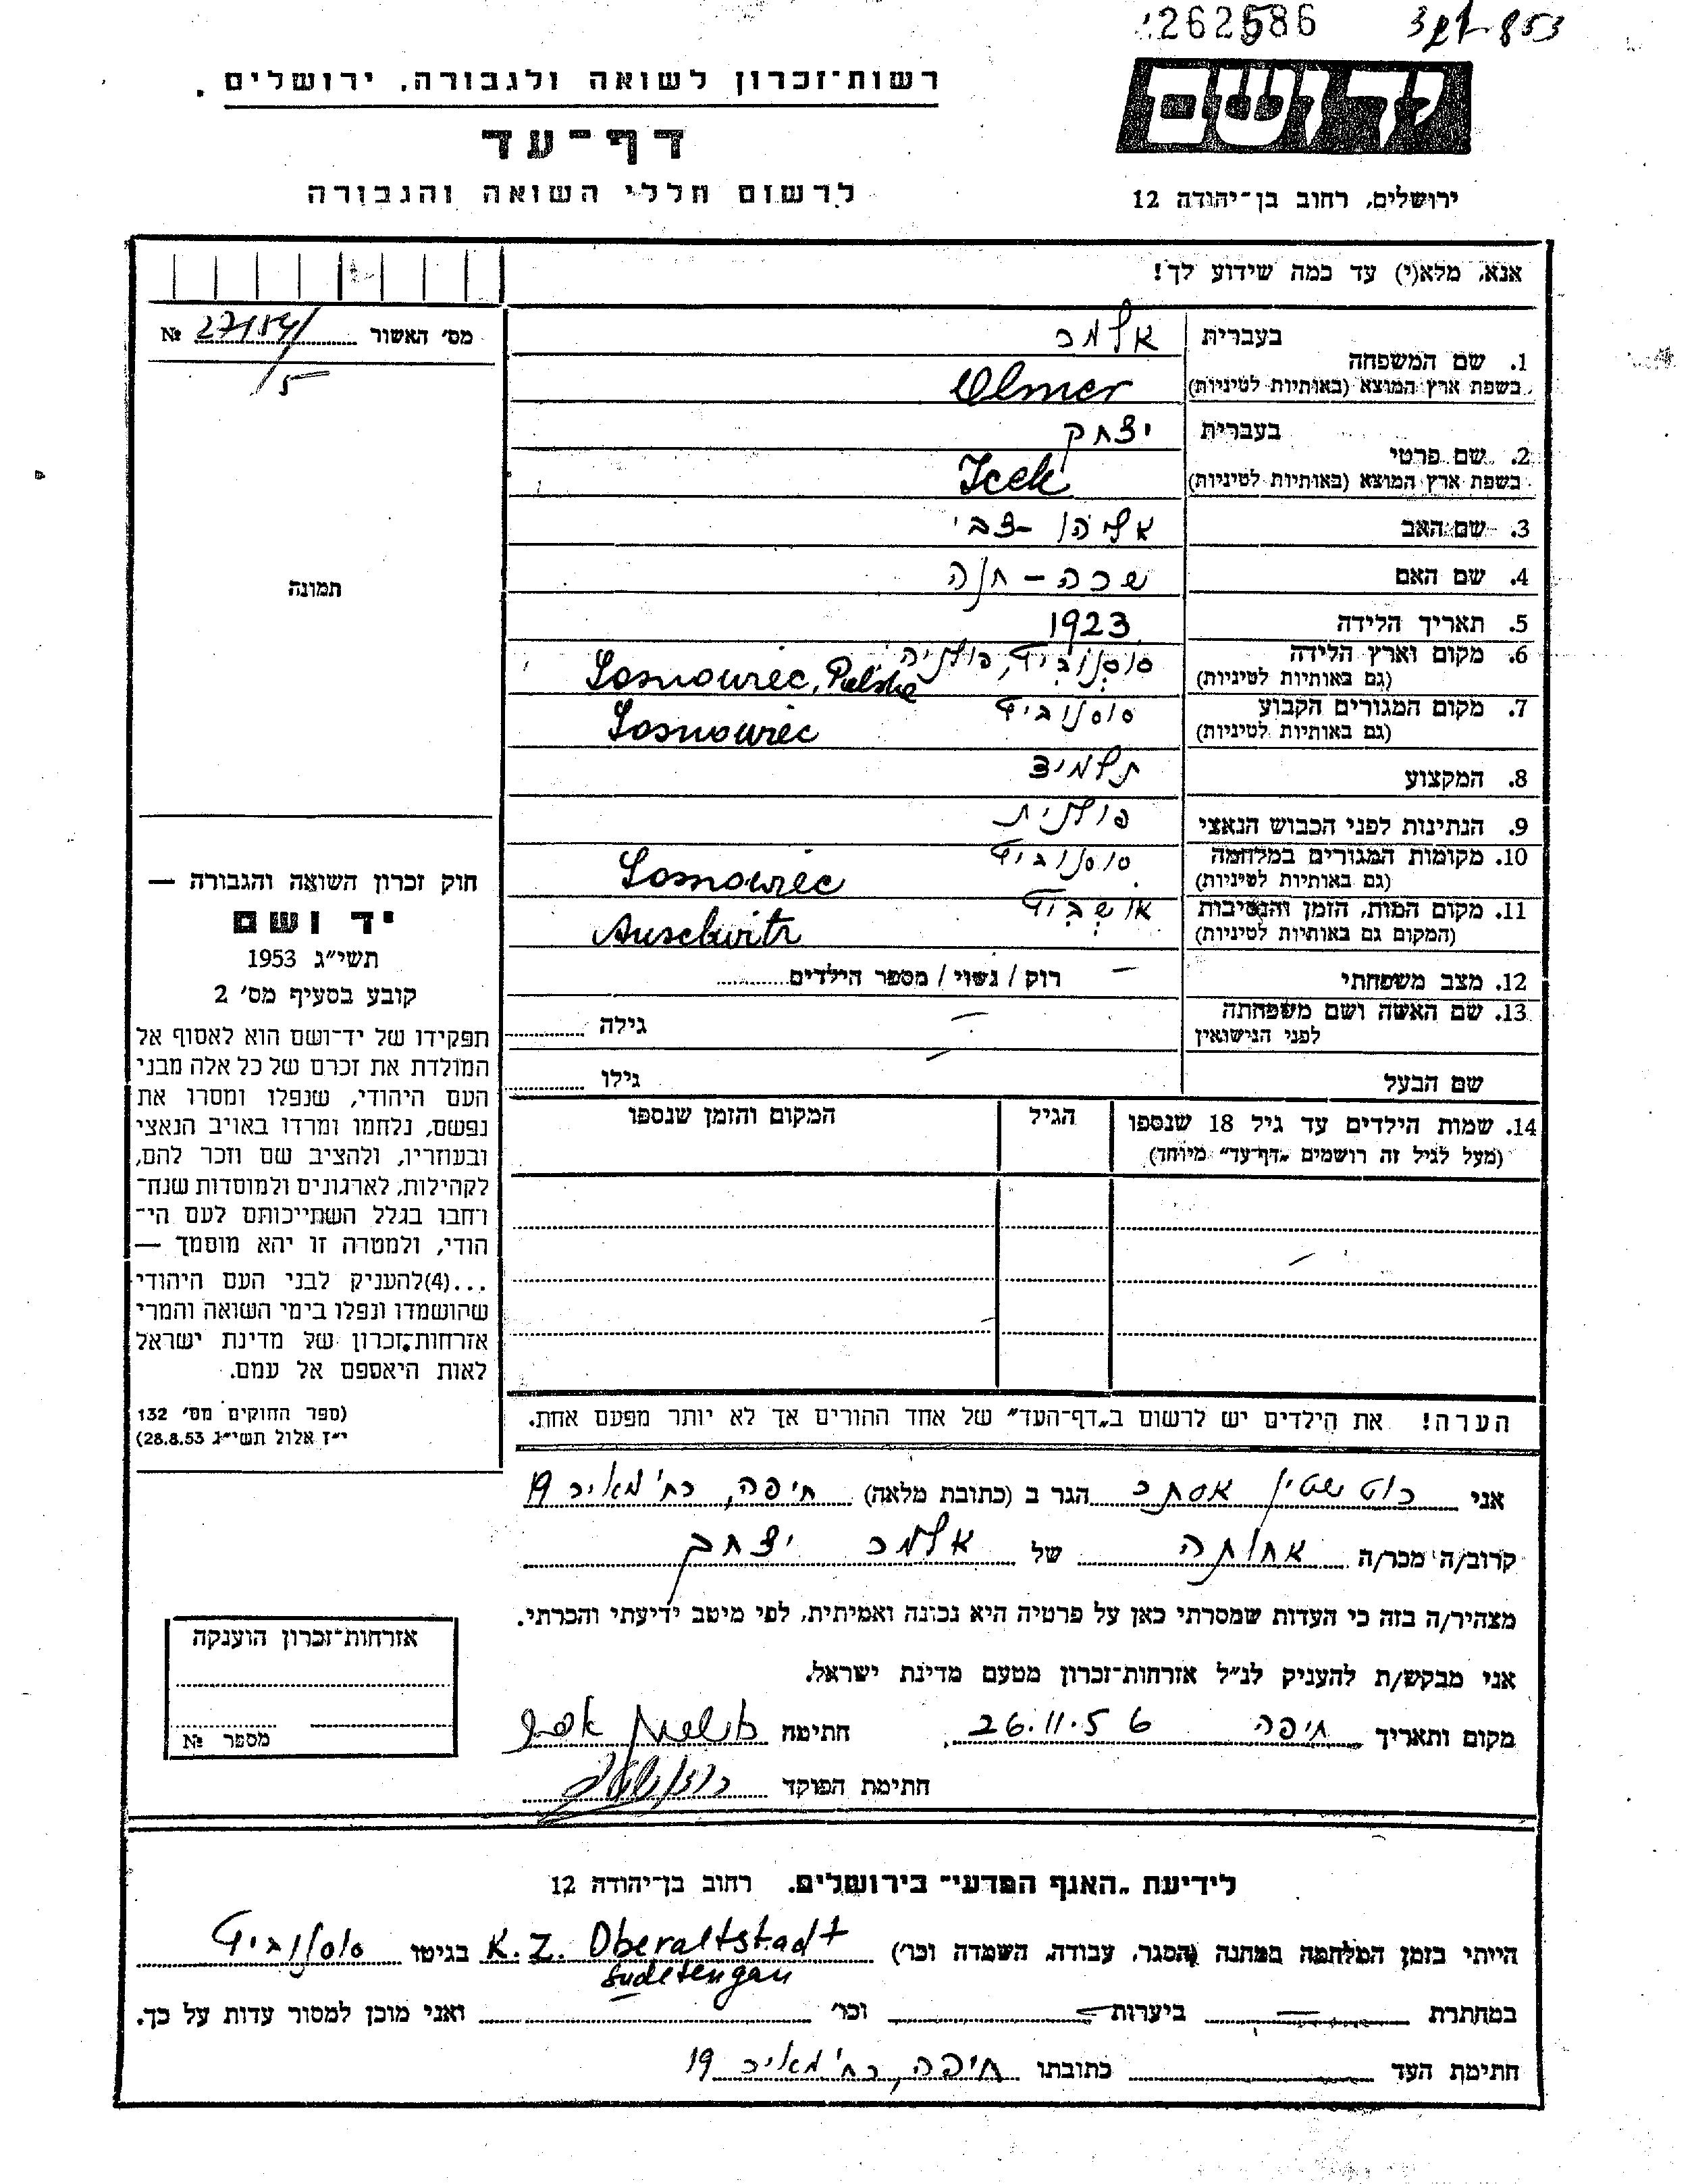 262586
853
יד ושם
רשות־זכרון לשואה ולגבורה, ירושלים.
דף־עד
לרשום חללי השואה והגבורה
ירושלים, רחוב בן־יהודה 12
אנא, מלא(י) עד כמה שידוע לך!
מס' האשור № 27154/
5
תמונה
1. שם המשפחה
בעברית אלמר
בשפת ארץ המוצא (באותיות לטיניות) Olmer
2. שם פרטי
בעברית יצחק
בשפת ארץ המוצא (באותיות לטיניות) Icek
3. שם האב אליהו - צבי
4. שם האם שרה - חנה
5. תאריך הלידה 1923
6. מקום וארץ הלידה סוסנוביץ, פולניה
(גם באותיות לטיניות) Sosnowiec, Polska
7. מקום המגורים הקבוע סוסנוביץ
(גם באותיות לטיניות) Sosnowiec
8. המקצוע תלמיד
9. הנתינות לפני הכבוש הנאצי פולנית
10. מקומות המגורים במלחמה סוסנוביץ
(גם באותיות לטיניות) Sosnowiec
11. מקום המות, הזמן והנסיבות אושביץ
(המקום גם באותיות לטיניות) Auschwitz
12. מצב משפחתי – רוק / נשוי / מספר הילדים
13. שם האשה ושם משפחתה – גילה
לפני הנישואין
שם הבעל – גילו
14. שמות הילדים עד גיל 18 שנספו הגיל המקום והזמן שנספו
(מעל לגיל זה רושמים „דף־עד" מיוחד)
הערה! את הילדים יש לרשום ב„דף־העד" של אחד ההורים אך לא יותר מפעם אחת.
חוק זכרון השואה והגבורה —
יד ושם
תשי"ג 1953
קובע בסעיף מס' 2
תפקידו של יד־ושם הוא לאסוף אל
המולדת את זכרם של כל אלה מבני
העם היהודי, שנפלו ומסרו את
נפשם, נלחמו ומרדו באויב הנאצי
ובעוזריו, ולהציב שם וזכר להם,
לקהילות, לארגונים ולמוסדות שנח־
רחבו בגלל השתייכותם לעם הי־
הודי, ולמטרה זו יהא מוסמך —
...(4)להעניק לבני העם היהודי
שהושמדו ונפלו בימי השואה והמרי
אזרחות־זכרון של מדינת ישראל
לאות היאספם אל עמם.
(ספר החוקים מס' 132
י"ז אלול תשי"ג 28.8.53)
אני רוטשטיין אסתר הגר ב (כתובת מלאה) חיפה, רח' מאיר 19
קרוב/ה מכר/ה אחותה של אלמר יצחק
מצהיר/ה בזה כי העדות שמסרתי כאן על פרטיה היא נכונה ואמיתית, לפי מיטב ידיעתי והכרתי.
אני מבקש/ת להעניק לנ"ל אזרחות־זכרון מטעם מדינת ישראל.
מקום ותאריך חיפה 26.11.56 חתימה
חתימת הפוקד
אזרחות־זכרון הוענקה
מספר №
לידיעת „האגף המדעי" בירושלים. רחוב בן־יהודה 12
הייתי בזמן המלחמה במחנה (הסגר, עבודה, השמדה וכו') K.Z. Oberaltstadt בגיטו סוסנוביץ
Sudetengau
במחתרת — ביערות — וכו' ואני מוכן למסור עדות על כך.
חתימת העד כתובתו חיפה, רח' מאיר 19